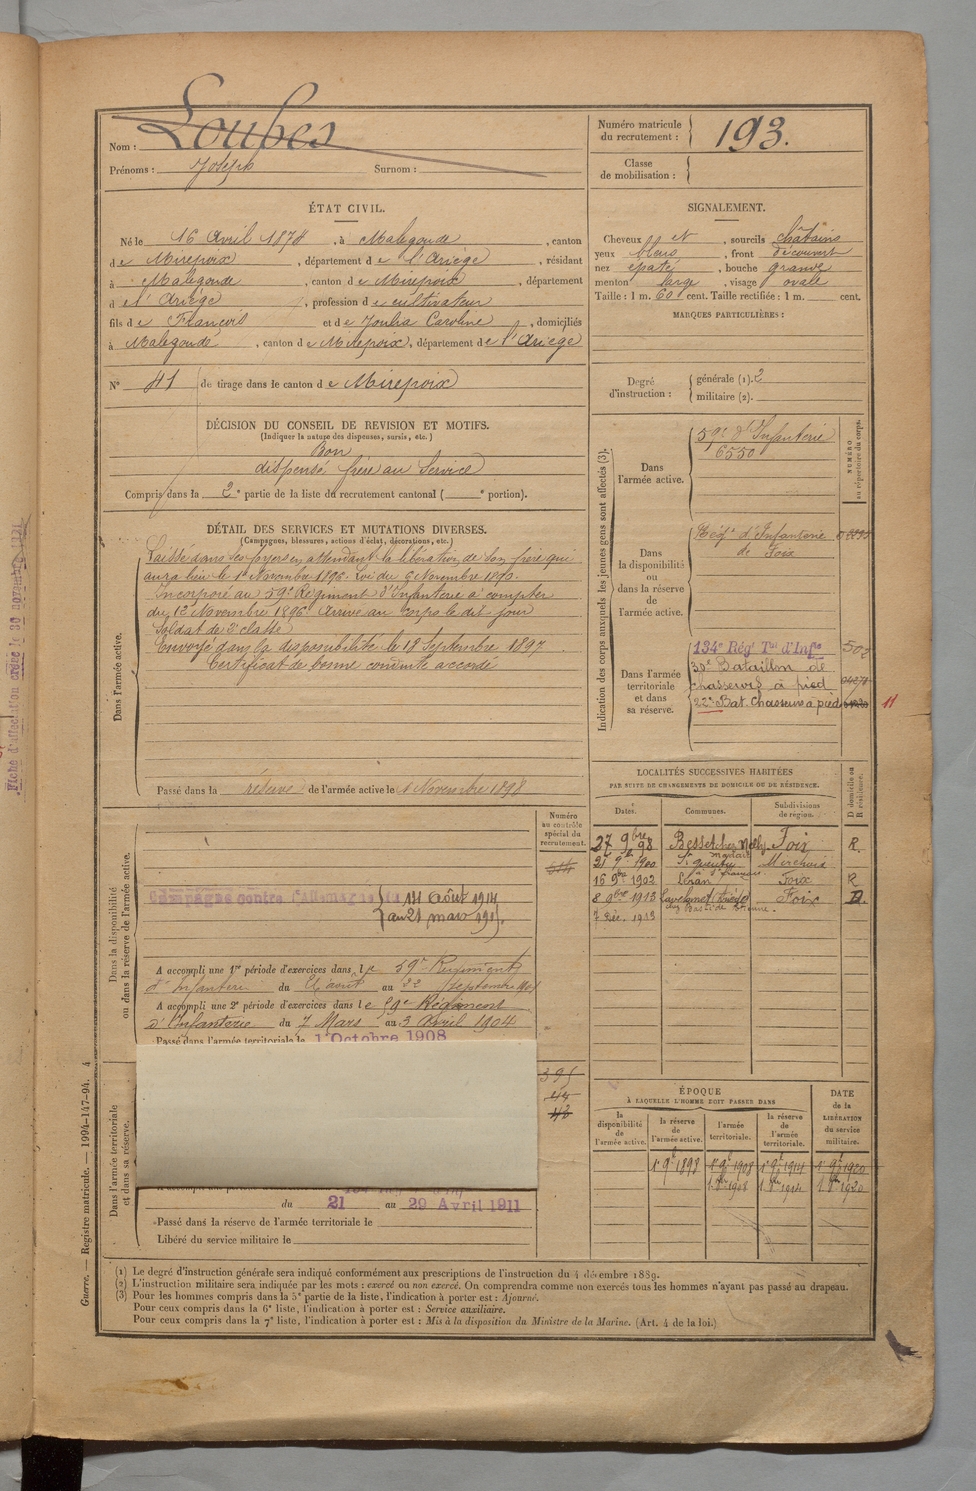 Nom : Loubes
Prénoms : Joseph Surnom :
Numéro matricule du recrutement : 193.
Classe de mobilisation :
ÉTAT CIVIL.
Né le 16 Avril 1874, à Malegoude, canton
de Mirepoix, département de l'Ariège, résidant
à Malegoude, canton de Mirepoix, département
d e l'Ariège, profession de cultivateur
fils de François et de Joulia Caroline, domiciliés
à Malegoude, canton de Mirepoix, département de l'Ariège
N° 41 de tirage dans le canton de Mirepoix
SIGNALEMENT.
Cheveux et, sourcils châtains
yeux bleus, front découvert
nez épaté, bouche grande
menton large, visage ovale
Taille : 1 m. 60 cent. Taille rectifiée : 1 m. cent.
MARQUES PARTICULIÈRES :
Degré d'instruction : générale (1). 2
militaire (2).
DÉCISION DU CONSEIL DE REVISION ET MOTIFS.
(Indiquer la nature des dispenses, sursis, etc.)
Bon
dispensé frère au Service
Compris dans la 2e partie de la liste du recrutement cantonal ( e portion).
DÉTAIL DES SERVICES ET MUTATIONS DIVERSES.
(Campagnes, blessures, actions d'éclat, décorations, etc.)
Dans l'armée active.
Laissé dans ses foyers en attendant la libération de son frère qui
aura lieu le 1er Novembre 1896. Loi du 6 Novembre 1890.
Incorporé au 59e Régiment d'Infanterie à compter
du 12 Novembre 1896. Arrivé au corps le dit jour
Soldat de 2e classe
Envoyé dans la disponibilité le 18 Septembre 1897.
Certificat de bonne conduite accordé
Passé dans la réserve de l'armée active le 1 Novembre 1898
Indication des corps auxquels les jeunes gens sont affectés (3).
NUMÉRO au répertoire du corps.
Dans l'armée active.
59e d'Infanterie
6550
Dans la disponibilité ou dans la réserve de l'armée active.
Régt d'Infanterie
de Foix
Dans l'armée territoriale et dans sa réserve.
134e Rég' Tal d'Infie 502
30e Bataillon de
chasseurs à pied
22e Bat. Chasseurs à pied
11
LOCALITÉS SUCCESSIVES HABITÉES
PAR SUITE DE CHANGEMENTS DE DOMICILE OU DE RÉSIDENCE.
Dates. Communes. Subdivisions de région. D domicile ou R résidence.
27 9bre 98 Besset Foix R.
1900 St Quentin
16 9bre 1902 Léran Foix R
8 9bre 1913 Lavelanet Foix D.
7 Déc. 1913
Dans la disponibilité ou dans la réserve de l'armée active.
Numéro au contrôle spécial du recrutement.
Campagne contre l'Allemagne du
14 Août 1914
au 21 mars 1915.
A accompli une 1re période d'exercices dans le 59e Régiment
d'Infanterie du août au 22 septembre 1901
A accompli une 2e période d'exercices dans le 59e Régiment
d'Infanterie du 7 Mars au 3 Avril 1904
Passé dans l'armée territoriale le 1 Octobre 1908
395
Dans l'armée territoriale et dans sa réserve.
du 21 au 29 Avril 1911
Passé dans la réserve de l'armée territoriale le
Libéré du service militaire le
ÉPOQUE
À LAQUELLE L'HOMME DOIT PASSER DANS
DATE de la LIBÉRATION du service militaire.
la disponibilité de l'armée active.
la réserve de l'armée active.
l'armée territoriale.
la réserve de l'armée territoriale.
1er 9bre 1898 1er 9bre 1908 1er 9bre 1914 1er 9bre 1920
1 8bre 1908 1 8bre 1914 1 8bre 1920
(1) Le degré d'instruction générale sera indiqué conformément aux prescriptions de l'instruction du 4 décembre 1889.
(2) L'instruction militaire sera indiquée par les mots : exercé ou non exercé. On comprendra comme non exercés tous les hommes n'ayant pas passé au drapeau.
(3) Pour les hommes compris dans la 5e partie de la liste, l'indication à porter est : Ajourné.
Pour ceux compris dans la 6e liste, l'indication à porter est : Service auxiliaire.
Pour ceux compris dans la 7e liste, l'indication à porter est : Mis à la disposition du Ministre de la Marine. (Art. 4 de la loi.)
Guerre. — Registre matricule. — 1994-147-94. 4
Fiche d'affectation créée le 30 novembre 1921